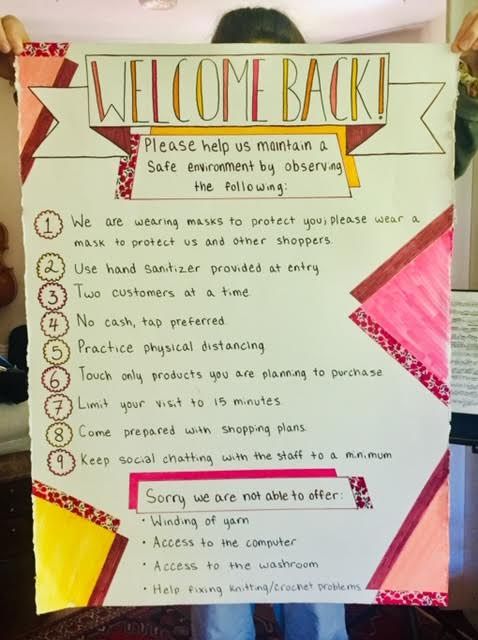 WELCOME BACK!
Please help us maintain a
Safe environment by observing
the following:
1 We are wearing masks to protect you; please wear a
mask to protect us and other shoppers.
2 Use hand sanitizer provided at entry
3 Two customers at a time
4 No cash, tap preferred.
5 Practice physical distancing
6 Touch only products you are planning to purchase
7 Limit your visit to 15 minutes.
8 Come prepared with shopping plans.
9 Keep social chatting with the staff to a minimum
Sorry we are not able to offer:
· Winding of yarn
· Access to the computer
· Access to the washroom
· Help fixing knitting/crochet problems